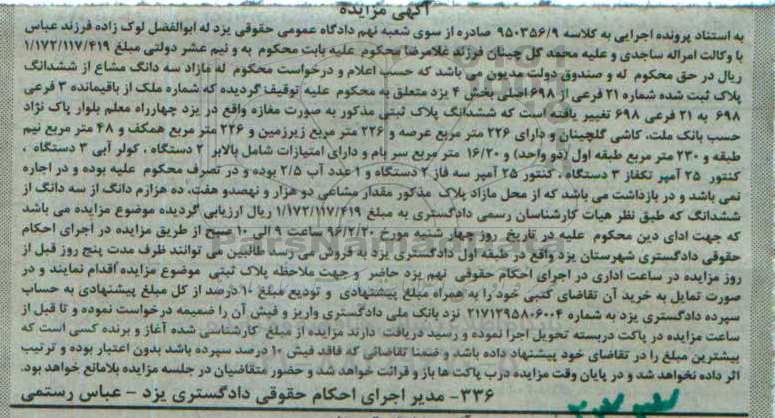 آگهی مزایده
به استناد پرونده اجرایی به کلاسه ۹۵۰۳۵۶/۹ صادره از سوی شعبه نهم دادگاه عمومی حقوقی یزد له ابوالفضل لوک زاده فرزند عباس
با وکالت امراله ساجدی و علیه محمد گل چینان فرزند غلامرضا محکوم علیه بابت محکوم به و نیم عشر دولتی مبلغ ۱/۱۷۲/۱۱۷/۴۱۹
ریال در حق محکوم له و صندوق دولت مدیون می باشد که حسب اعلام و درخواست محکوم له مازاد سه دانگ مشاع از ششدانگ
پلاک ثبت شده شماره ۲۱ فرعی از ۶۹۸ اصلی بخش ۴ یزد متعلق به محکوم علیه توقیف گردیده که شماره ملک از باقیمانده ۳ فرعی
۶۹۸ به ۲۱ فرعی ۶۹۸ تغییر یافته است که ششدانگ پلاک ثبتی مذکور به صورت مغازه واقع در یزد چهارراه معلم بلوار پاک نژاد
حسب بانک ملت، کاشی گلچینان و دارای ۲۲۶ متر مربع عرصه و ۲۲۶ متر مربع زیرزمین و ۲۲۶ متر مربع همکف و ۴۸ متر مربع نیم
طبقه و ۲۳۰ متر مربع طبقه اول (دو واحد) و ۱۶/۲۰ متر مربع سر بام و دارای امتیازات شامل بالابر ۲ دستگاه ، کولر آبی ۳ دستگاه ،
کنتور ۲۵ آمپر تکفاز ۳ دستگاه ، کنتور ۲۵ آمپر سه فاز ۲ دستگاه و ۱ عدد آب ۲/۵ بوده و در تصرف محکوم علیه بوده و در اجاره
نمی باشد و در بازداشت می باشد که از محل مازاد پلاک مذکور مقدار مشاعی دو هزار و نهصدو هفت، ده هزارم دانگ از سه دانگ از
ششدانگ که طبق نظر هیات کارشناسان رسمی دادگستری به مبلغ ۱/۱۷۲/۱۱۷/۴۱۹ ریال ارزیابی گردیده موضوع مزایده می باشد
که جهت ادای دین محکوم علیه در تاریخ روز چهار شنبه مورخ ۹۶/۲/۲۰ ساعت ۹ الی ۱۰ صبح از طریق مزایده در اجرای احکام
حقوقی دادگستری شهرستان یزد واقع در طبقه اول دادگستری یزد به فروش می رسد طالبین می توانند ظرف مدت پنج روز قبل از
روز مزایده در ساعت اداری در اجرای احکام حقوقی نهم یزد حاضر و جهت ملاحظه پلاک ثبتی موضوع مزایده اقدام نمایند و در
صورت تمایل به خرید آن تقاضای کتبی خود را به همراه مبلغ پیشنهادی و تودیع مبلغ ۱۰درصد از کل مبلغ پیشنهادی به حساب
سپرده دادگستری یزد به شماره ۲۱۷۱۲۹۵۸۰۶۰۰۴ نزد بانک ملی دادگستری واریز و فیش آن را ضمیمه درخواست نموده و تا قبل از
ساعت مزایده در پاکت دربسته تحویل اجرا نموده و رسید دریافت دارند مزایده از مبلغ کارشناسی شده آغاز و برنده کسی است که
بیشترین مبلغ را در تقاضای خود پیشنهاد داده باشد و ضمنا تقاضائی که فاقد فیش ۱۰ درصد سپرده باشد بدون اعتبار بوده و ترتیب
اثر داده نخواهد شد و در پایان وقت مزایده درب پاکت ها باز و قرائت خواهد شد و حضور متقاضیان در جلسه مزایده بلامانع خواهد بود.
۳۳۶- مدیر اجرای احکام حقوقی دادگستری یزد - عباس رستمی
ParsNamadData